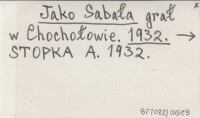 Jako Sabała grał
w Chochołowie. 1932. →
STOPKA A. 1932.